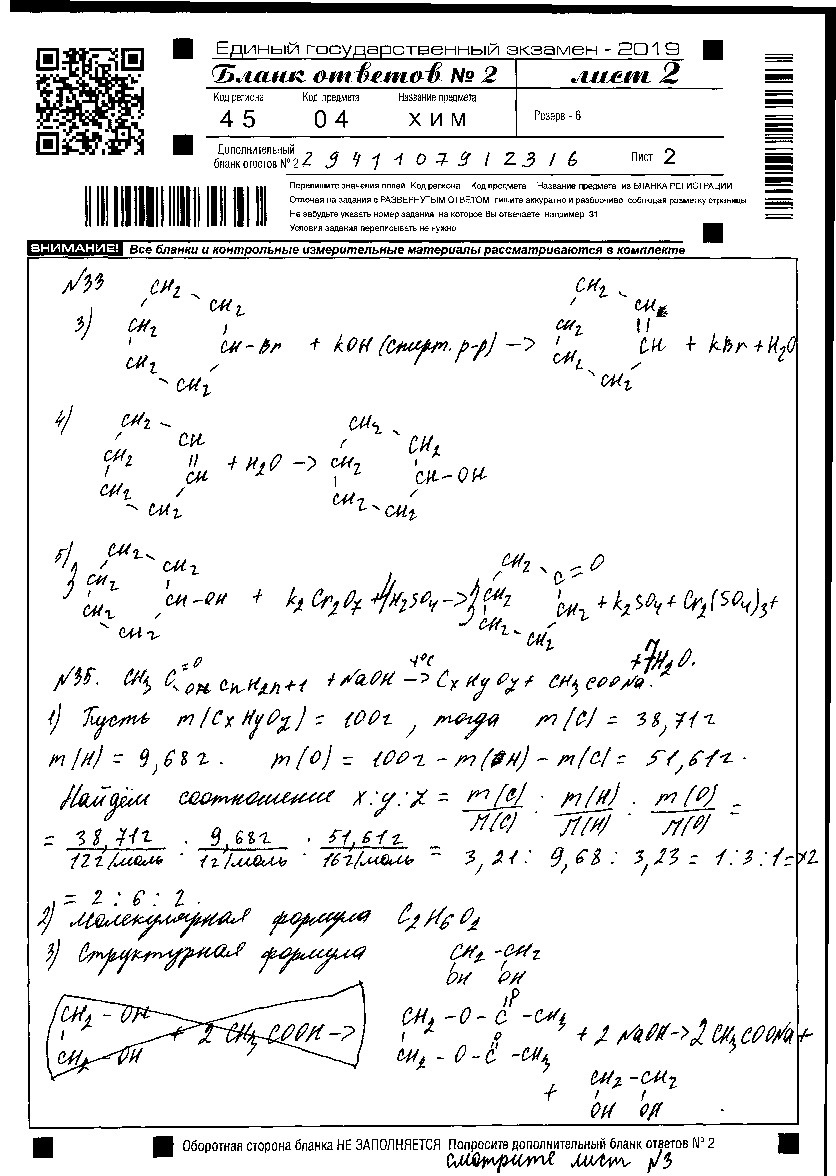 Единый государственный экзамен - 2019
Бланк ответов № 2 лист 2
Код региона Код предмета Название предмета
45 04 ХИМ Резерв - 6
Дополнительный
бланк ответов № 2 2941107912316 Лист 2
Перепишите значения полей Код региона Код предмета Название предмета из БЛАНКА РЕГИСТРАЦИИ
Отвечая на задания с РАЗВЕРНУТЫМ ОТВЕТОМ пишите аккуратно и разборчиво соблюдая разметку страницы
Не забудьте указать номер задания на которое Вы отвечаете например 31
Условия задания переписывать не нужно
ВНИМАНИЕ! Все бланки и контрольные измерительные материалы рассматриваются в комплекте
№33
CH2 CH2
CH2 CH2
3) CH2 CH-Br + KOH (спирт. р-р) -> CH2 CH + KBr + H2O
CH2 CH2
CH2 CH2
4) CH2 - CH2 -
CH CH2
CH2 + H2O -> CH2
CH CH-OH
CH2 CH2
CH2 CH2
5) CH2 CH2
3 CH2 C=O
CH2 CH-OH + K2Cr2O7 + 4H2SO4 -> 3 CH2 CH2 + K2SO4 + Cr2(SO4)3 +
CH2 CH2
CH2 CH2
+ 7H2O.
№35. CH3 C=O OH CnH2n+1 + NaOH t°C -> CxHyOz + CH3COONa.
1) Пусть m(CxHyOz) = 100г, тогда m(C) = 38,71г
m(H) = 9,68г. m(O) = 100г - m(H) - m(C) = 51,61г.
Найдём соотношение x:y:z = m(C)/M(C) : m(H)/M(H) : m(O)/M(O) =
= 38,71г/12г/моль : 9,68г/1г/моль : 51,61г/16г/моль = 3,21 : 9,68 : 3,23 = 1:3:1 = x2
= 2 : 6 : 2.
2) Молекулярная формула C2H6O2
3) Структурная формула CH2-CH2
OH OH
CH2-OH + 2CH3COOH ->
CH2-OH
CH2 - O - C - CH3 + 2NaOH -> 2CH3COONa +
O
CH2 - O - C - CH3
+ CH2-CH2
OH OH
Оборотная сторона бланка НЕ ЗАПОЛНЯЕТСЯ Попросите дополнительный бланк ответов № 2
смотрите лист №3